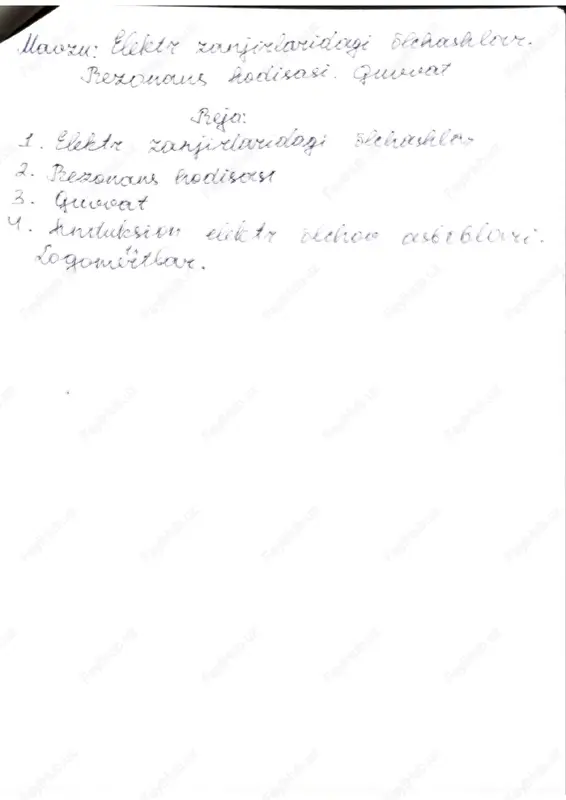 Mavzu: Elektr zanjirlaridagi õlchashlar.
Rezonans hodisasi. Quvvat
Reja:
1. Elektr zanjirlaridagi õlchashlar
2. Rezonans hodisasi
3. Quvvat
4. Induksion elektr õlchov asboblari.
Logometrlar.